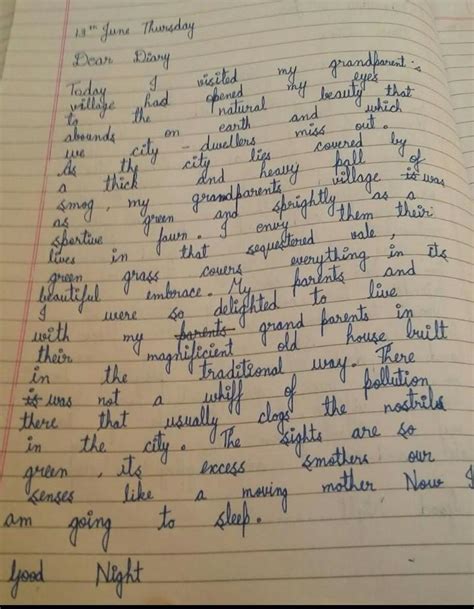 13th June Thursday
Dear Diary
Today I visited my grandparent's
village had opened my eyes
to the natural beauty that
abounds on earth and which
we city - dwellers miss out.
As the city lies covered by
a thick and heavy pall of
smog, my grandparents village is was
as green and sprightly as a
sportive fawn. I envy them their
lives in that sequestered vale,
green grass covers everything in its
beautiful embrace. My parents and
I were so delighted to live
with my parents grand parents in
their magnificient old house built
in the traditional way. There
is was not a whiff of pollution
there that usually clogs the nostrils
in the city. The sights are so
green, its excess smothers our
senses like a moving mother Now I
am going to sleep.
Good Night